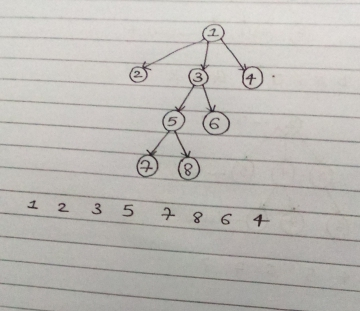 1
2 3 4
5 6
7 8
1 2 3 5 7 8 6 4